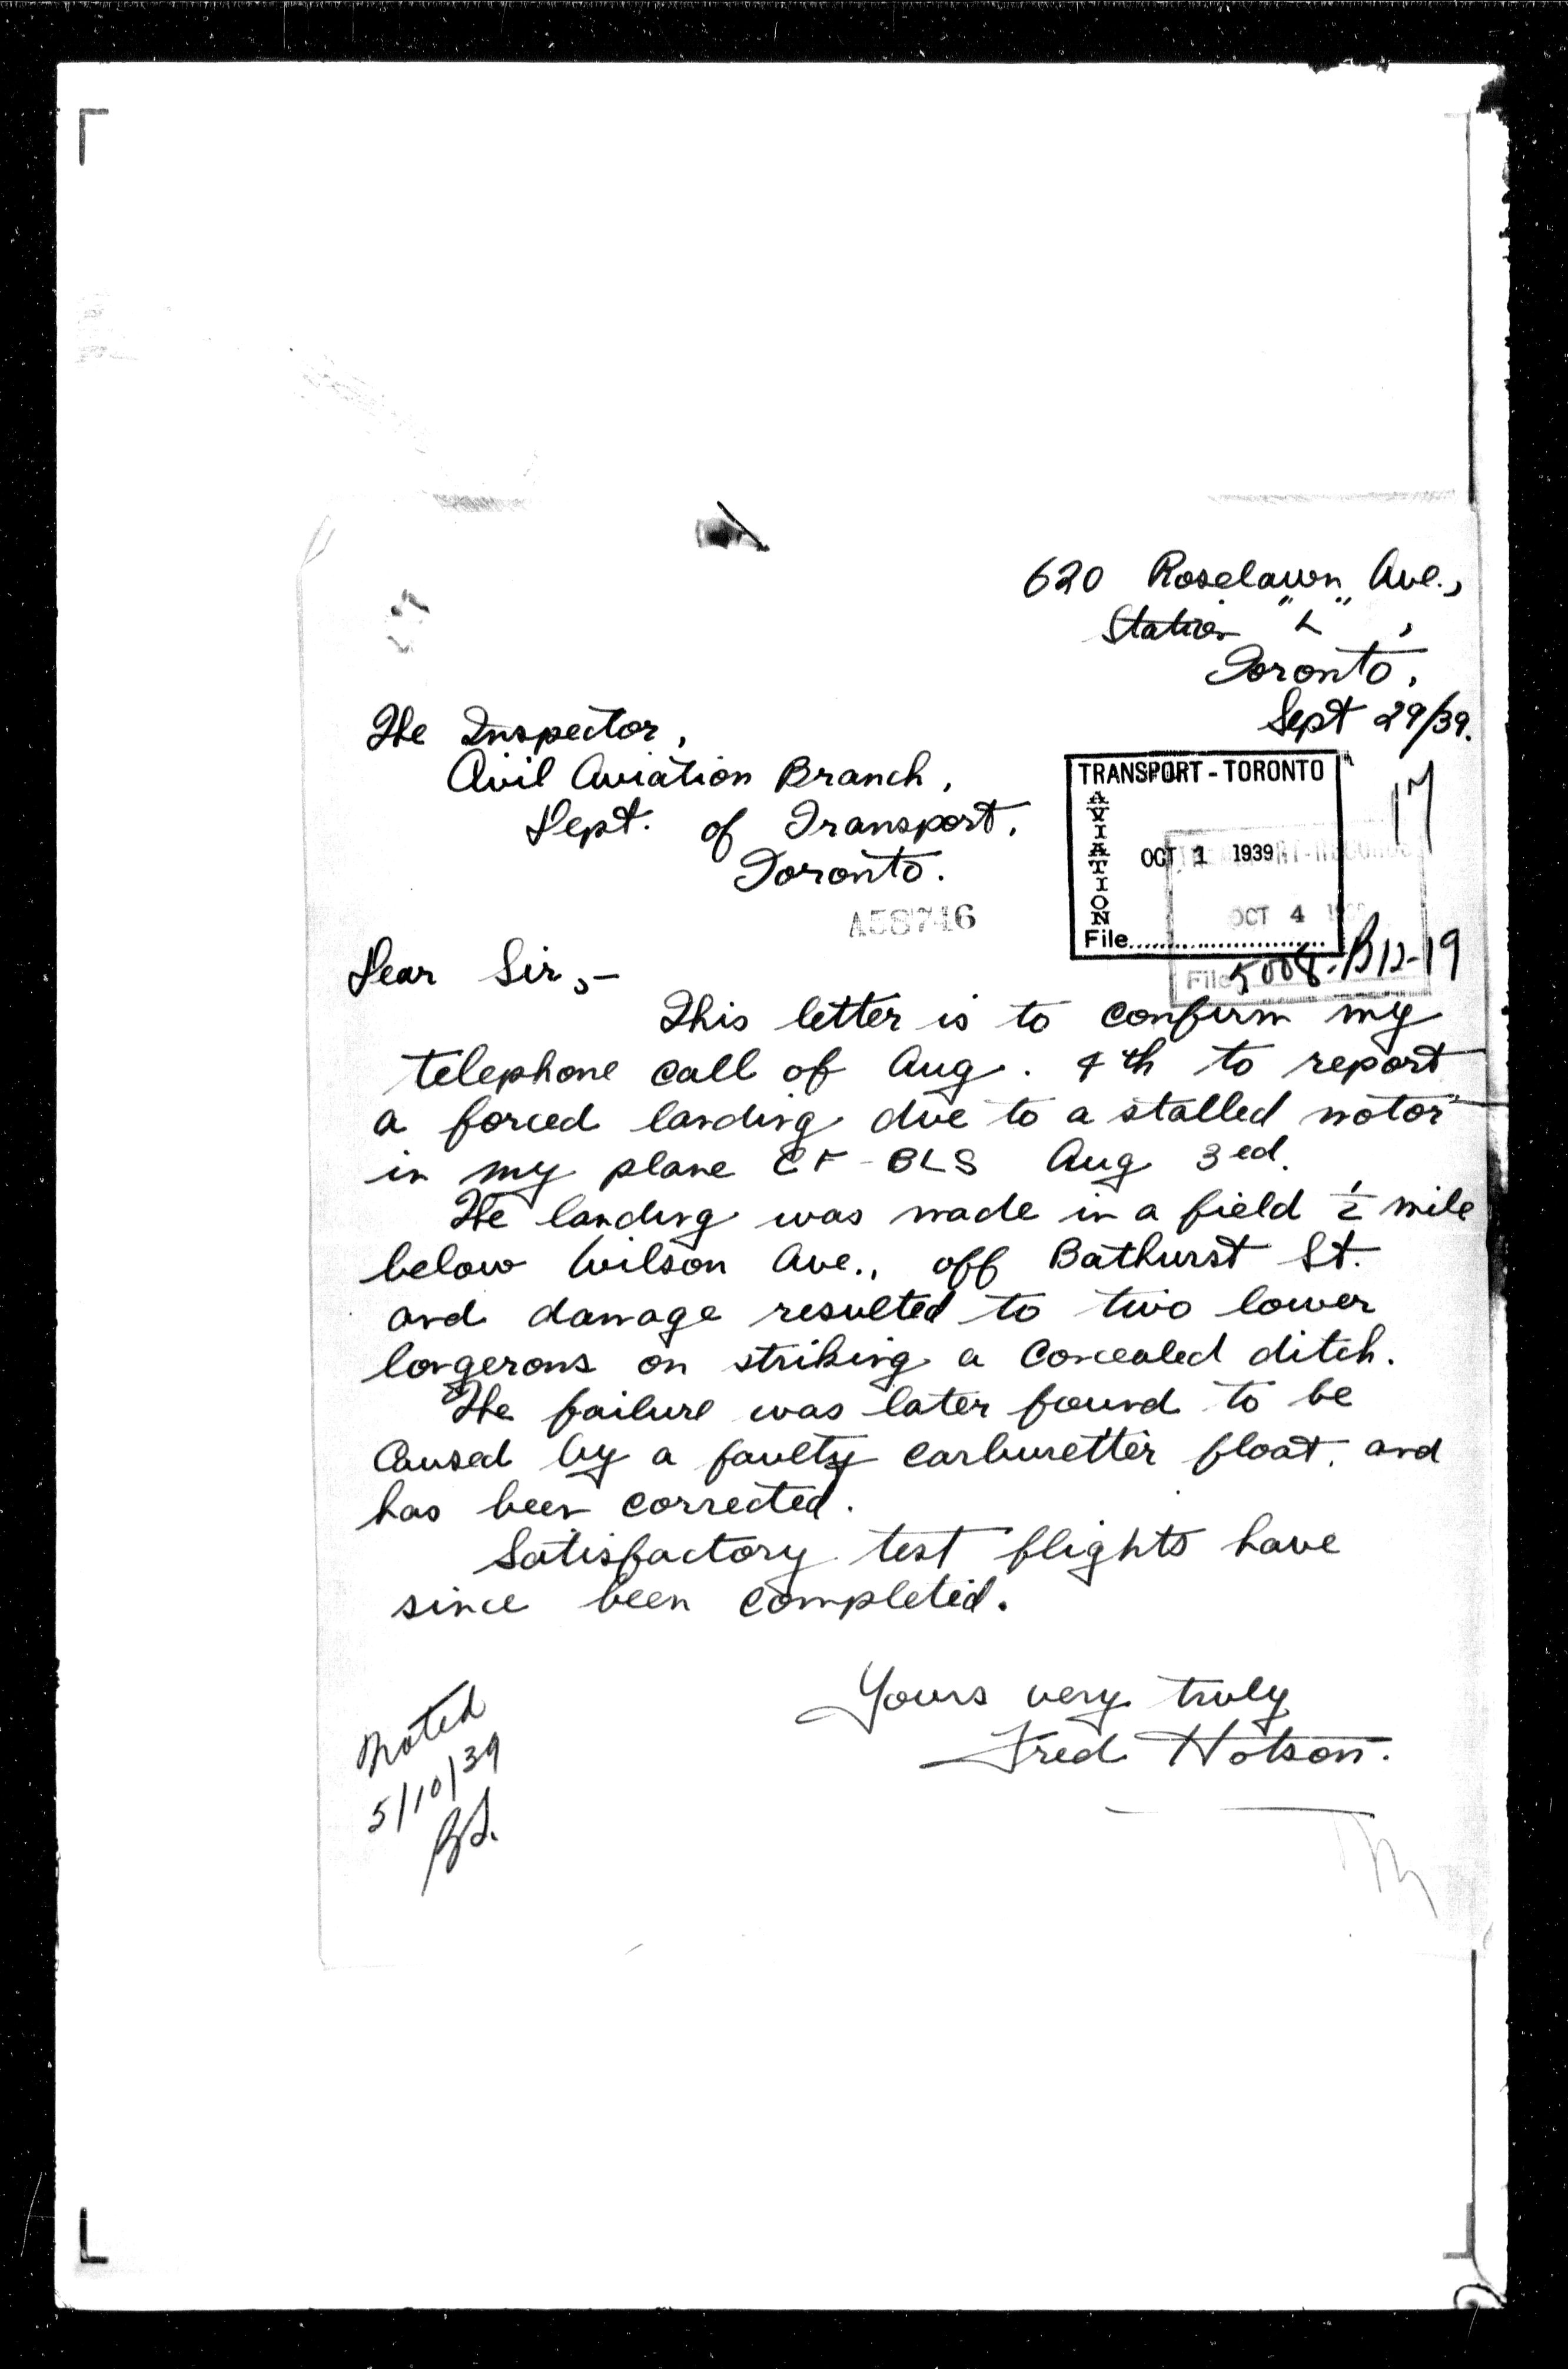 620 Roselawn Ave.,
Station "L",
Toronto,
Sept 29/39.
The Inspector,
Civil Aviation Branch,
Dept. of Transport,
Toronto.
TRANSPORT - TORONTO
AVIATION
OCT 1 1939
File
17
OCT 4
File 5008-B12-19
A58746
Dear Sir,-
This letter is to confirm my
telephone call of Aug. 4th to report
a forced landing due to a stalled motor
in my plane CF-BLS Aug 3ed.
The landing was made in a field ½ mile
below Wilson Ave., off Bathurst St.
and damage resulted to two lower
longerons on striking a concealed ditch.
The failure was later found to be
caused by a faulty carburetter float, and
has been corrected.
Satisfactory test flights have
since been completed.
Yours very truly
Fred Hotson.
Noted
5/10/39